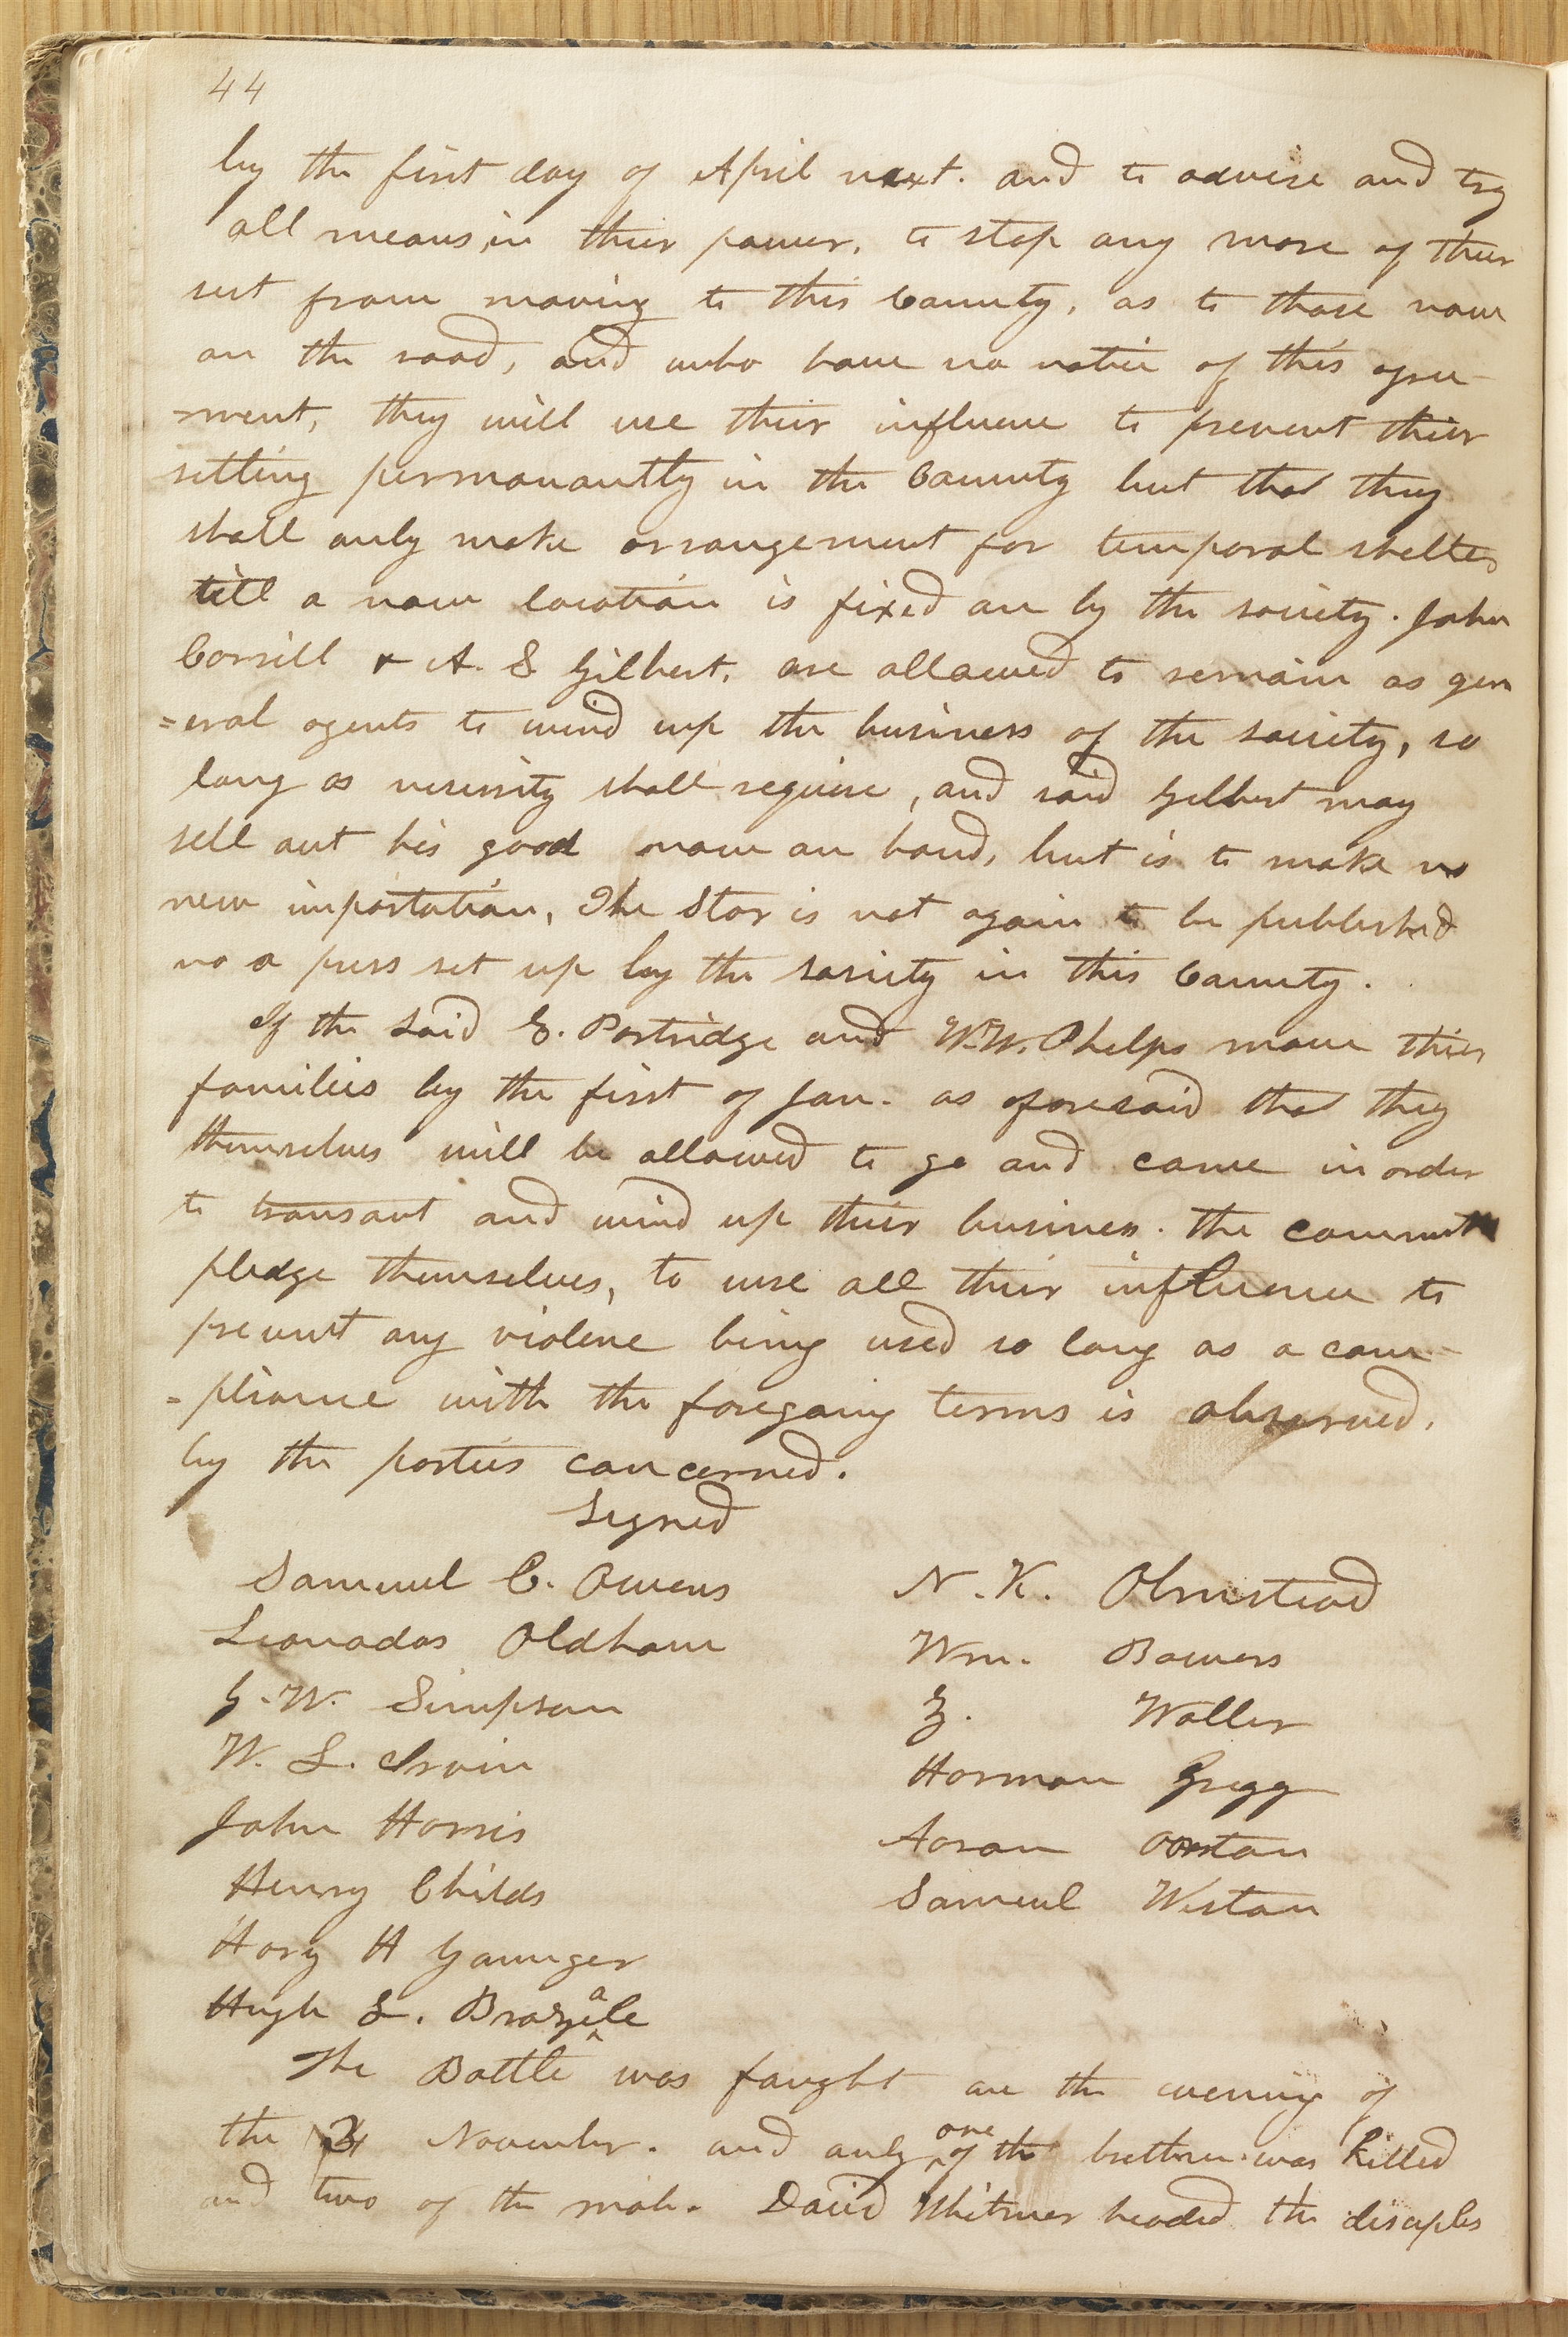 44
by the first day of April next. and to advise and try
all means in thier power, to stop any more of thier
sect from moving to this County, as to those now
on the road, and who have no notice of this agree-
=ment, they will use thier influence to prevent thier
setting permanantly in the County but that they
shall only make arrangement for temporal shelter
till a new location is fixed on by the society. John
Corrill & A. S Gilbert, are allowed to remain as gen
=eral agents to wind up the business of the society, so
long as necessity shall require, and said Gilbert may
sell out his good now on hand, but is to make no
new importation, The Star is not again to be published
no a press set up by the society in this County.
If the said E. Partridge and W.W. Phelps move thier
families by the first of Jan. as aforesaid that they
themselves will be allowed to go and come in order
to transact and wind up thier business. the committe
pledge themselves, to use all thier influence to
prevent any violence being used so long as a com-
=pliance with the foregoing terms is observed,
by the parties concerned.
Signed
Samuel C. Owens
Leonadas Oldham
G. W. Simpson
W. L. Irvin
John Harris
Henry Childs
Hary H Younger
Hugh L. Brazeale
N. K. Olmstead
Wm. Bowers
Z. Waller
Harman Gregg
Aaron Overton
Samuel Weston
The Battle was fought on the evening of
the 4 November. and only one of the brethren was killed
and two of the mob. David Whitmer headed the disciples